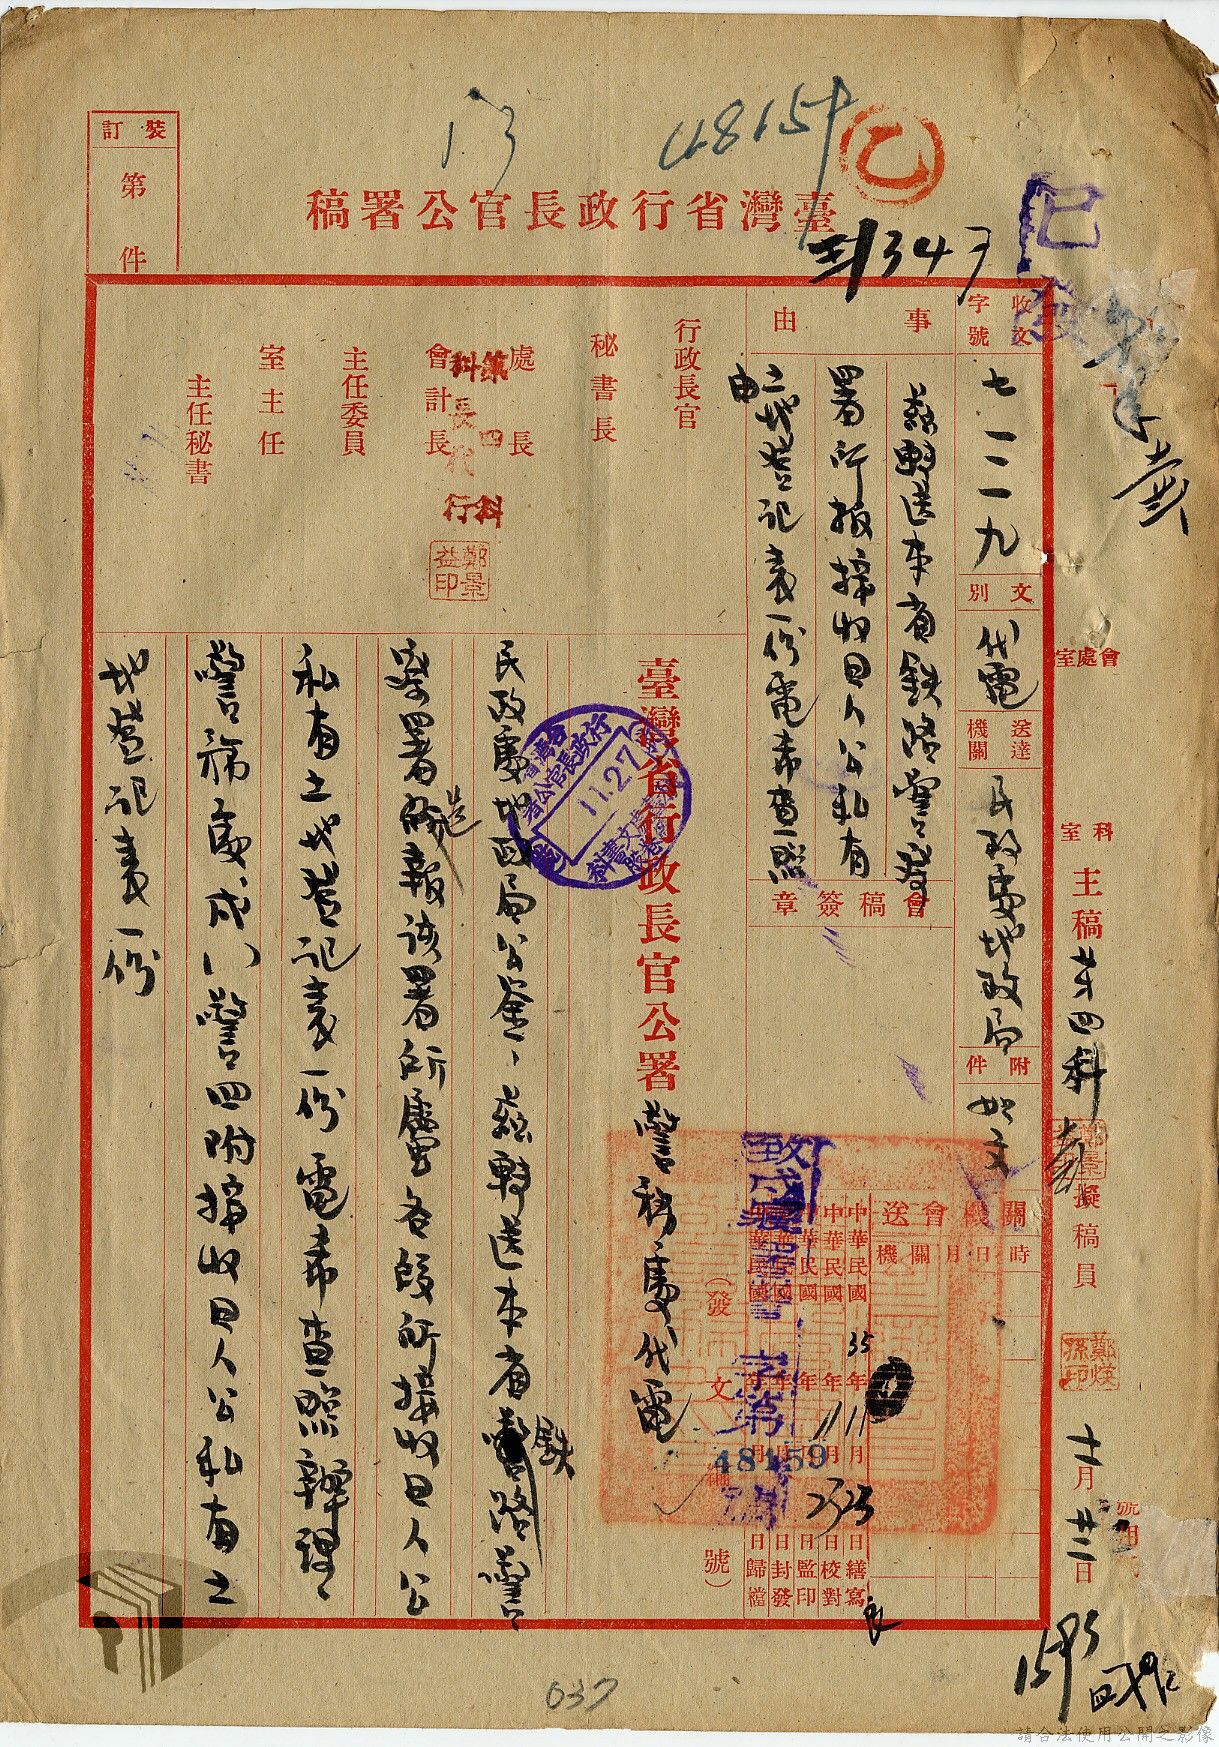 48159
13
乙
臺灣省行政長官公署稿
裝訂
第
件
已發
收文
字號
七一二一九
文別
代電
送達
機關
民政處地政局
附件
如文
事由
茲轉送本省鉄路警察
署所報接收日人公私有
土地登記表一份電希查照
由
會稿簽章
行政長官
秘書長
處長
會計長
第四科
科長代行
鄭景
益印
主任委員
室主任
主任秘書
會處室
科室
主稿
第四科
擬稿員
鄭煐
孫印
十一月廿二日
會送機關
機關
月
日
時
中華民國35年11月23日繕寫
中華民國 年11月23日校對
中華民國 年 月 日監印
中華民國 年 月 日封發
中華民國 年 月 日歸檔
(發文 號)
字第
48159
號
臺灣省行政長官公署警務處代電
台灣省行政長官公署
11.27
民政處地政局公鑒、茲轉送本省鉄路警
察署造報該署所屬各段所接收日人公
私有土地登記表一份電希查照辦理、
警務處戌()警四附接收日人公私有土
地登記表一份
037
請合法使用公開之影像